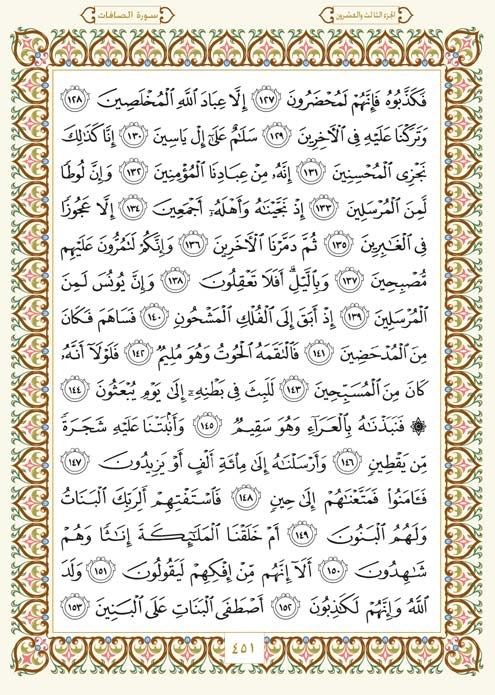 الجزء الثالث والعشرون
سورة الصافات
فَكَذَّبُوهُ فَإِنَّهُمْ لَمُحْضَرُونَ ١٢٧ إِلَّا عِبَادَ ٱللَّهِ ٱلْمُخْلَصِينَ ١٢٨
وَتَرَكْنَا عَلَيْهِ فِى ٱلْـَٔاخِرِينَ ١٢٩ سَلَٰمٌ عَلَىٰٓ إِلْ يَاسِينَ ١٣٠ إِنَّا كَذَٰلِكَ
نَجْزِى ٱلْمُحْسِنِينَ ١٣١ إِنَّهُۥ مِنْ عِبَادِنَا ٱلْمُؤْمِنِينَ ١٣٢ وَإِنَّ لُوطًا
لَّمِنَ ٱلْمُرْسَلِينَ ١٣٣ إِذْ نَجَّيْنَٰهُ وَأَهْلَهُۥٓ أَجْمَعِينَ ١٣٤ إِلَّا عَجُوزًا
فِى ٱلْغَٰبِرِينَ ١٣٥ ثُمَّ دَمَّرْنَا ٱلْـَٔاخَرِينَ ١٣٦ وَإِنَّكُمْ لَتَمُرُّونَ عَلَيْهِم
مُّصْبِحِينَ ١٣٧ وَبِٱلَّيْلِ ۗ أَفَلَا تَعْقِلُونَ ١٣٨ وَإِنَّ يُونُسَ لَمِنَ
ٱلْمُرْسَلِينَ ١٣٩ إِذْ أَبَقَ إِلَى ٱلْفُلْكِ ٱلْمَشْحُونِ ١٤٠ فَسَاهَمَ فَكَانَ
مِنَ ٱلْمُدْحَضِينَ ١٤١ فَٱلْتَقَمَهُ ٱلْحُوتُ وَهُوَ مُلِيمٌ ١٤٢ فَلَوْلَآ أَنَّهُۥ
كَانَ مِنَ ٱلْمُسَبِّحِينَ ١٤٣ لَلَبِثَ فِى بَطْنِهِۦٓ إِلَىٰ يَوْمِ يُبْعَثُونَ ١٤٤
۞ فَنَبَذْنَٰهُ بِٱلْعَرَآءِ وَهُوَ سَقِيمٌ ١٤٥ وَأَنۢبَتْنَا عَلَيْهِ شَجَرَةً
مِّن يَقْطِينٍ ١٤٦ وَأَرْسَلْنَٰهُ إِلَىٰ مِا۟ئَةِ أَلْفٍ أَوْ يَزِيدُونَ ١٤٧
فَـَٔامَنُوا۟ فَمَتَّعْنَٰهُمْ إِلَىٰ حِينٍ ١٤٨ فَٱسْتَفْتِهِمْ أَلِرَبِّكَ ٱلْبَنَاتُ
وَلَهُمُ ٱلْبَنُونَ ١٤٩ أَمْ خَلَقْنَا ٱلْمَلَٰٓئِكَةَ إِنَٰثًا وَهُمْ
شَٰهِدُونَ ١٥٠ أَلَآ إِنَّهُم مِّنْ إِفْكِهِمْ لَيَقُولُونَ ١٥١ وَلَدَ
ٱللَّهُ وَإِنَّهُمْ لَكَٰذِبُونَ ١٥٢ أَصْطَفَى ٱلْبَنَاتِ عَلَى ٱلْبَنِينَ ١٥٣
٤٥١